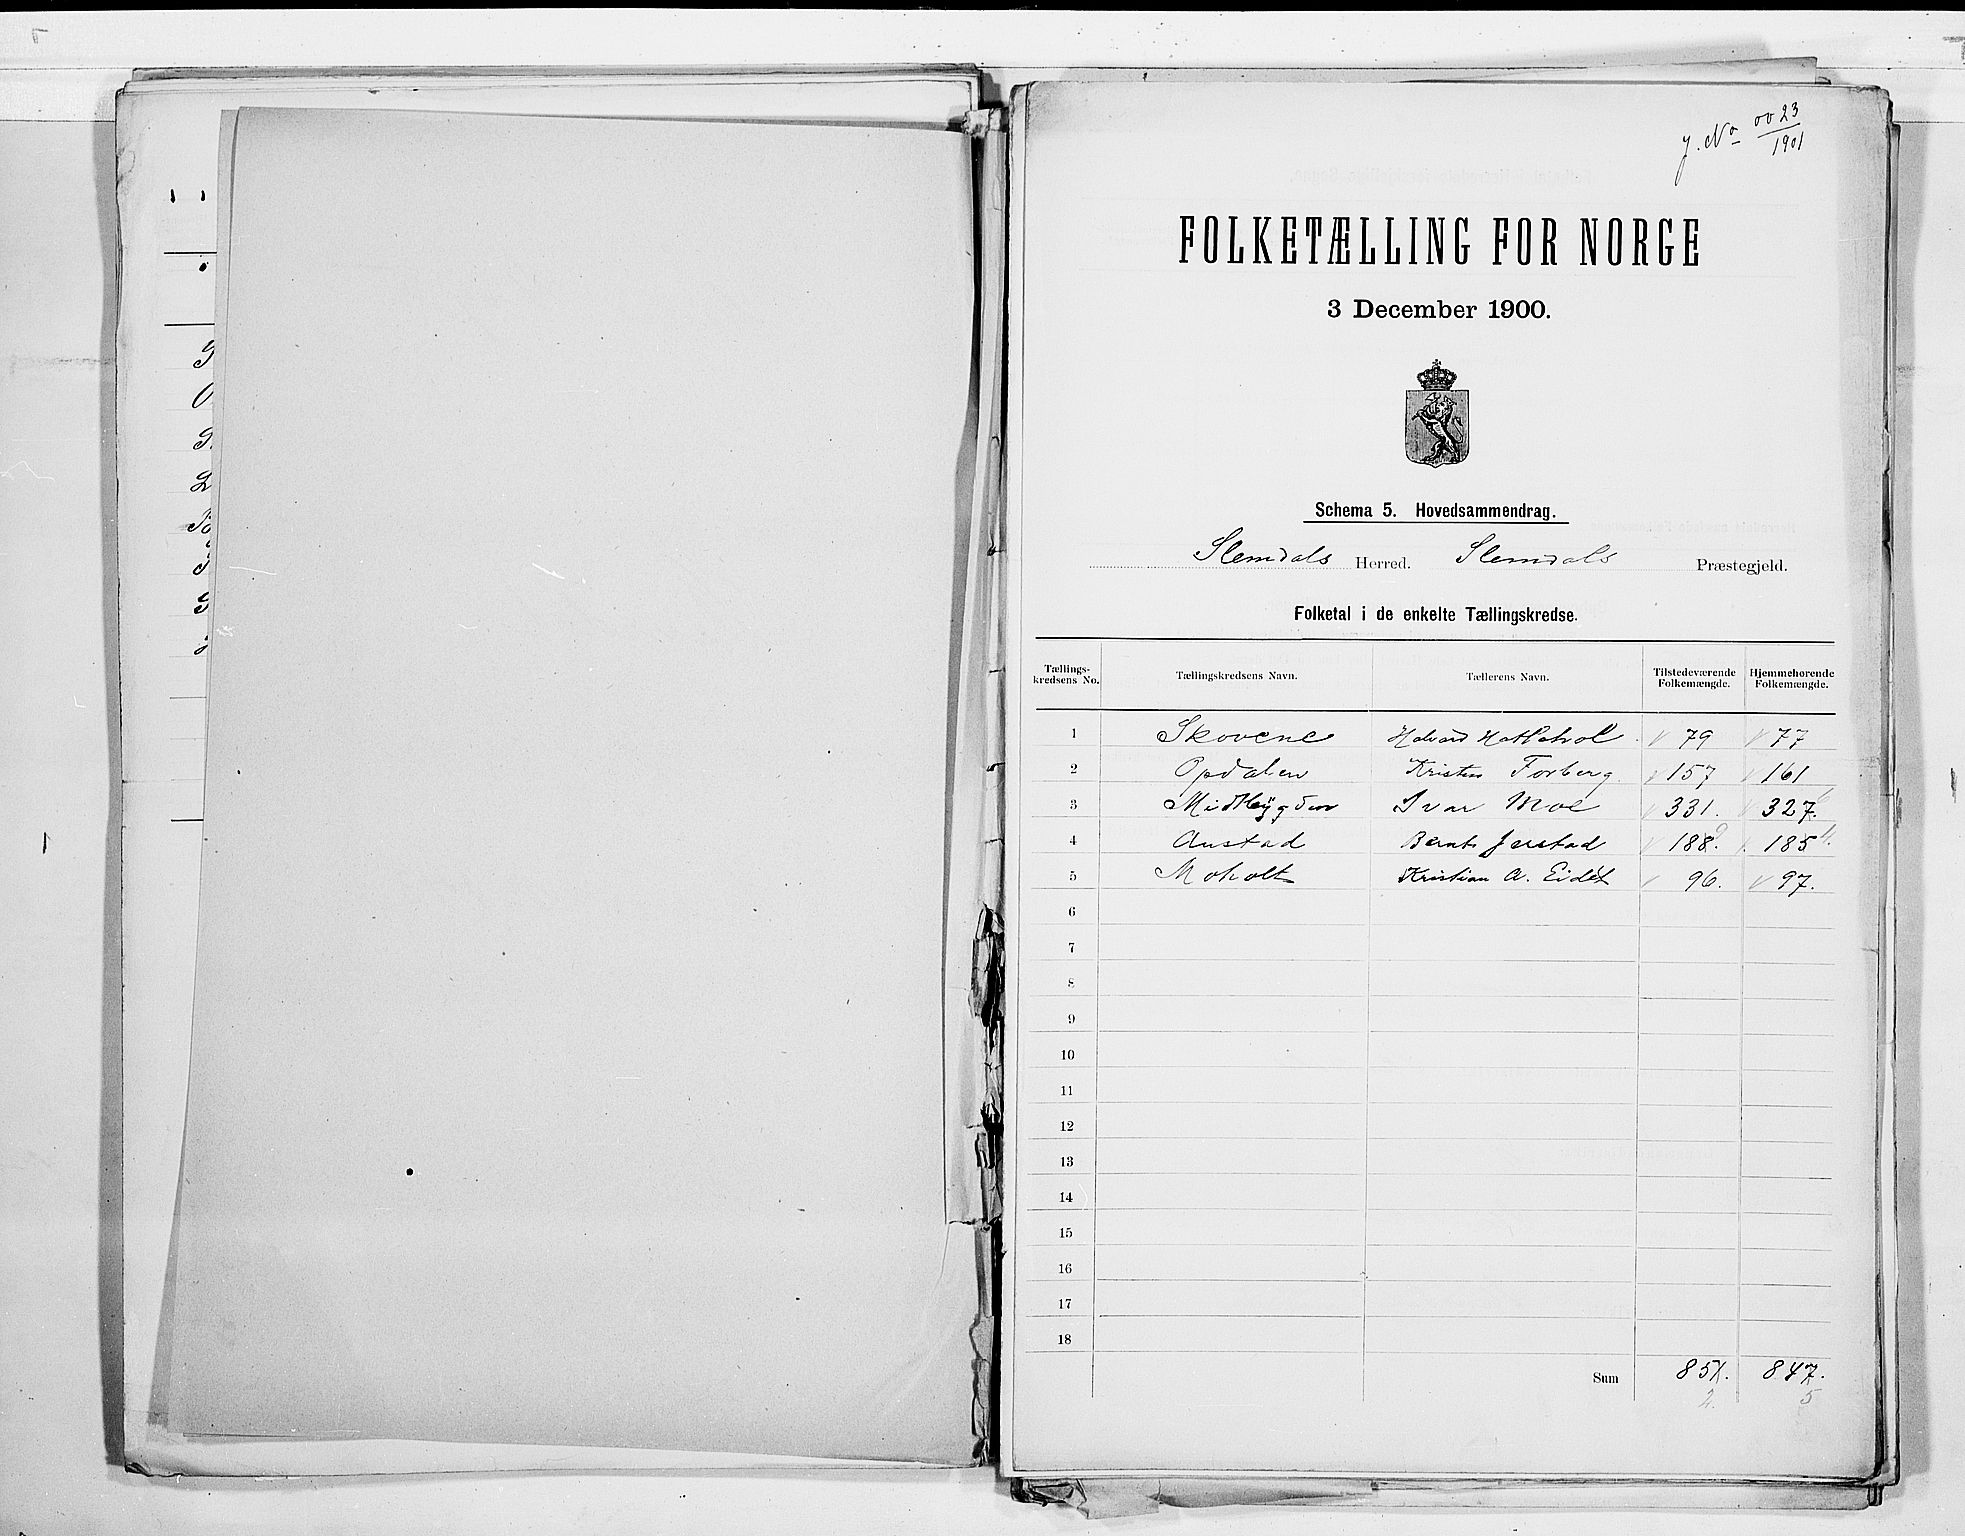 J. No 0023
1901
FOLKETÆLLING FOR NORGE
3 December 1900.
Schema 5. Hovedsammendrag.
Slemdals Herred. Slemdals Præstegjeld.
Folketal i de enkelte Tællingskredse.
Tællings-kredsens No. Tællingskredsens Navn. Tællerens Navn. Tilstedeværende Folkemængde. Hjemmehørende Folkemængde.
1 Skovene Halvard 79 77
2 Opdalen Kristen Forberg 157 161
3 Midtbygden Ivar Moe 331. 327. 6
4 Austad Bernt Jerstad 188. 9 185 4.
5 Moholt Kristian A. Eidet 96. 97.
6
7
8
9
10
11
12
13
14
15
16
17
18
Sum 851. 847.
2. 5